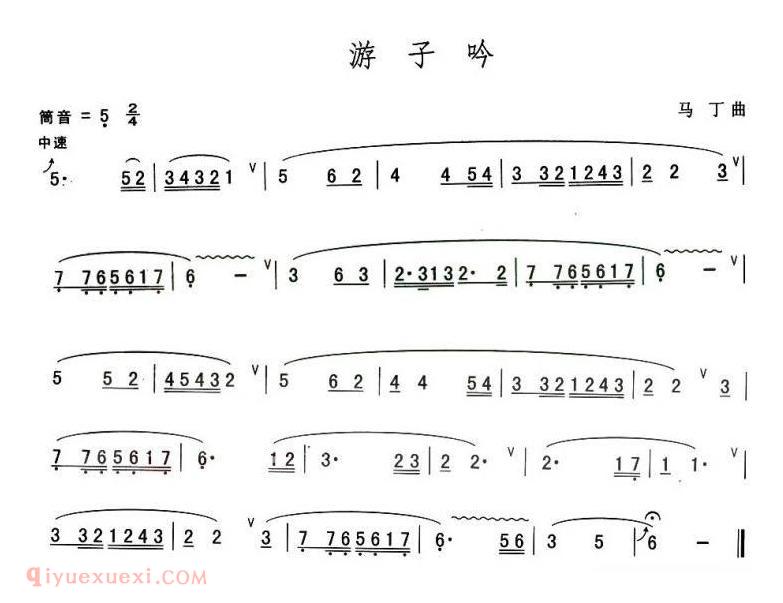 游子吟
筒音 = 5 2/4
马丁曲
中速
5· 52 | 34321 V | 5 62 | 4 4 54 | 3 321243 | 2 2 3 V |
7 765617 | 6 - V | 3 63 | 2·3132· 2 | 7 765617 | 6 - V |
5 52 | 45432 V | 5 62 | 4 4 54 | 3 321243 | 2 2 V 3 |
7 765617 | 6· 12 | 3· 23 | 2 2· V | 2· 17 | 1 1· V |
3 321243 | 2 2 V 3 | 7 765617 | 6· 56 | 3 5 | 6 - ‖
qiyuexuexi.COM